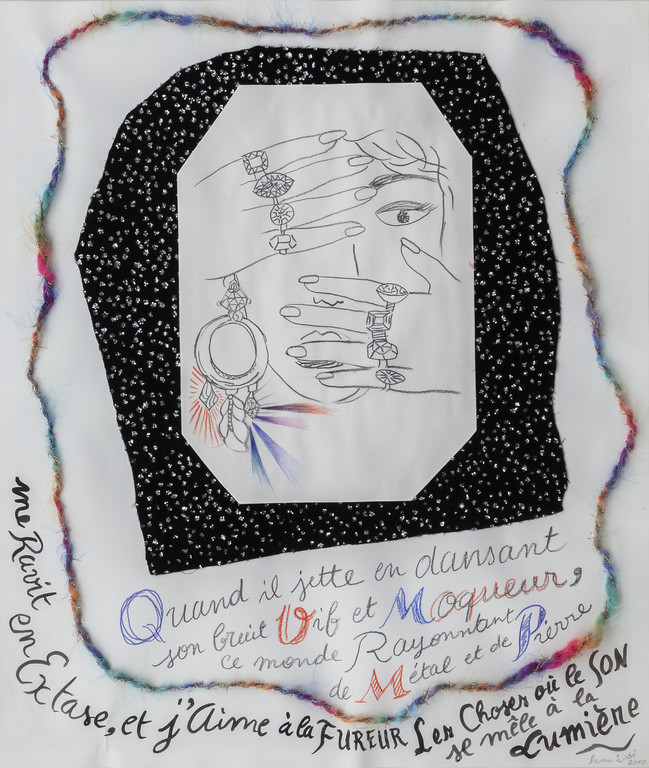 Quand il jette en dansant
son bruit Vif et Moqueur,
ce monde Rayonnant
de Métal et de Pierre
me Ravit en Extase, et j'Aime à la FUREUR Les Choses où le SON
se mêle à la
Lumière
2010